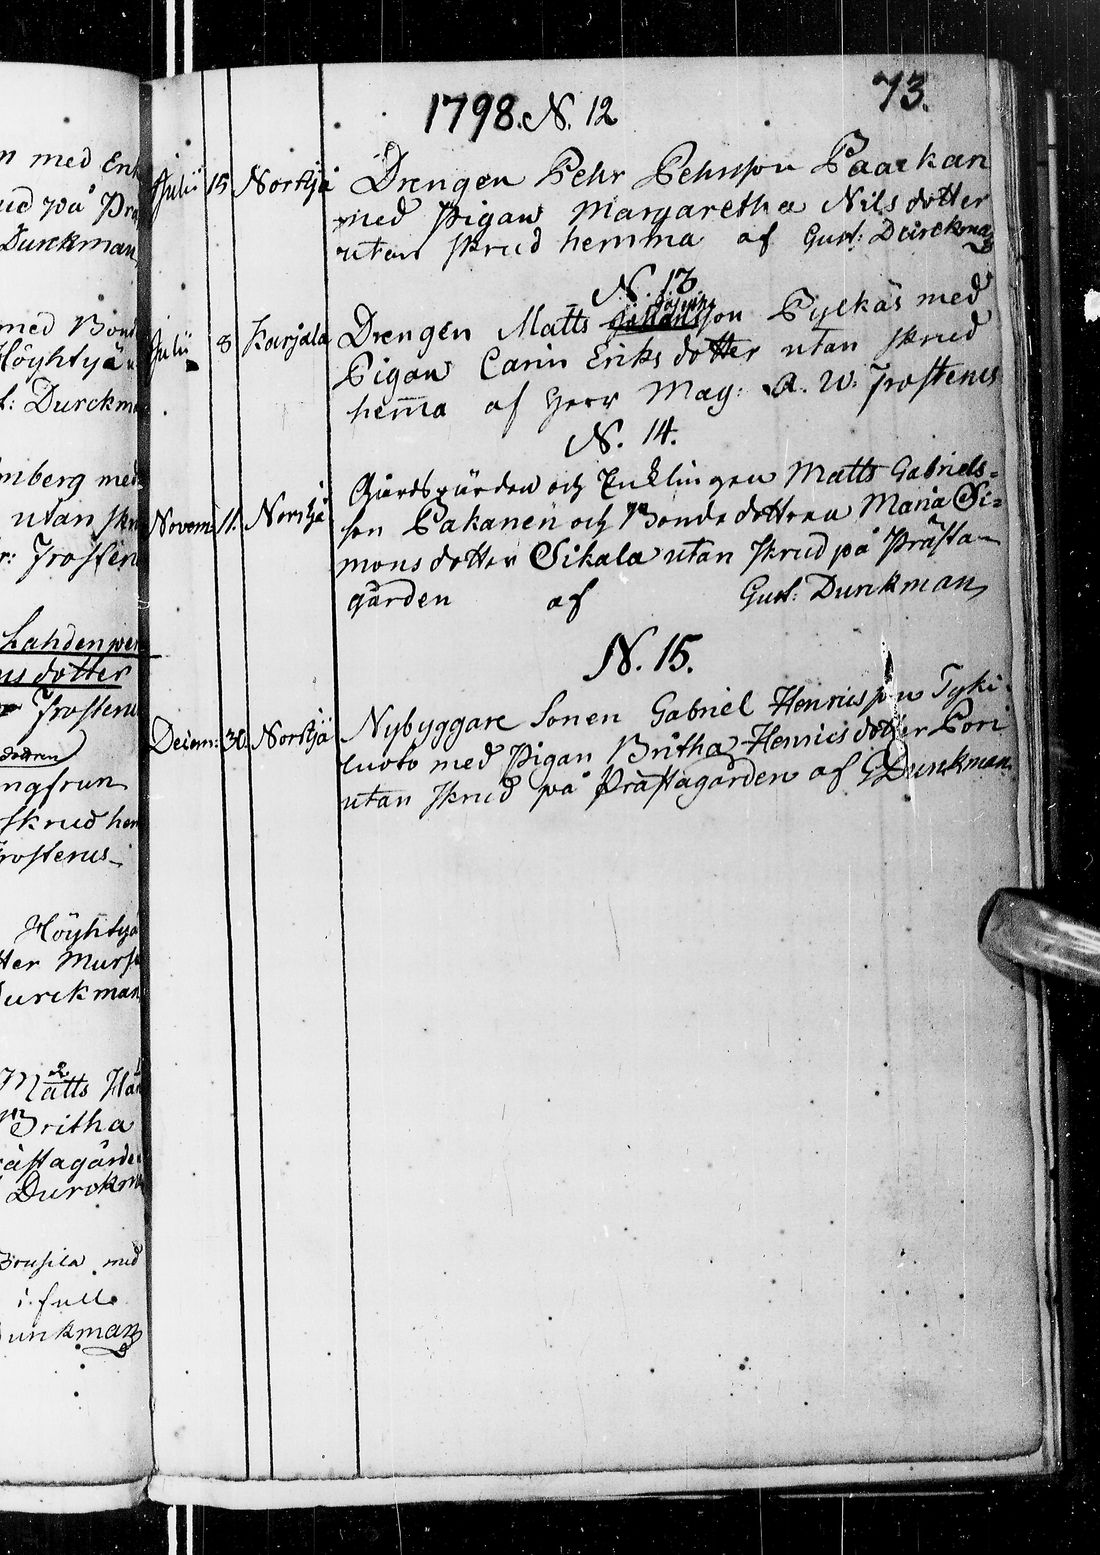 n med Enk
ud på Prä
Durckman
med Bond
Höyhtyä
t: Durckma
mberg med
utan skru
r: Frosten
Lahdenper
us dotter
Frosteru
dottren
ngfrun
skrud hem
rosterus
Höyhtyä
tter Mursu
Durckman
2
Matts Han
Britha
rästagården
Durckma
Brusila med
i full
Durckman
73.
1798. N. 12
Julii 15 Norrsjä Drengen Pehr Pehrsson Paackan
med Pigan Margaretha Nils dotter
utan skrud hemma af Gust: Durckman
N. 13
Julii 8 Karjala Drengen Matts Johansson Pylkäs med
Pigan Carin Eriks dotter utan skrud
hem̄a af Herr Mag: A. W. Frosterus
N. 14.
Novem: 11. Norrsjä Gårdsfärden och Enklingen Matts Gabriels-
son Pakanen och Bonde dottren Maria Si-
mons dotter Sikala utan skrud på Prästa-
gården af Gust: Durckman
N. 15.
Decem: 30. Norrsjä Nybyggare Sonen Gabriel Henricsson Tyki-
luoto med Pigan Britha Henrics dotter Pori
utan skrud på Prästagården af GDurckman